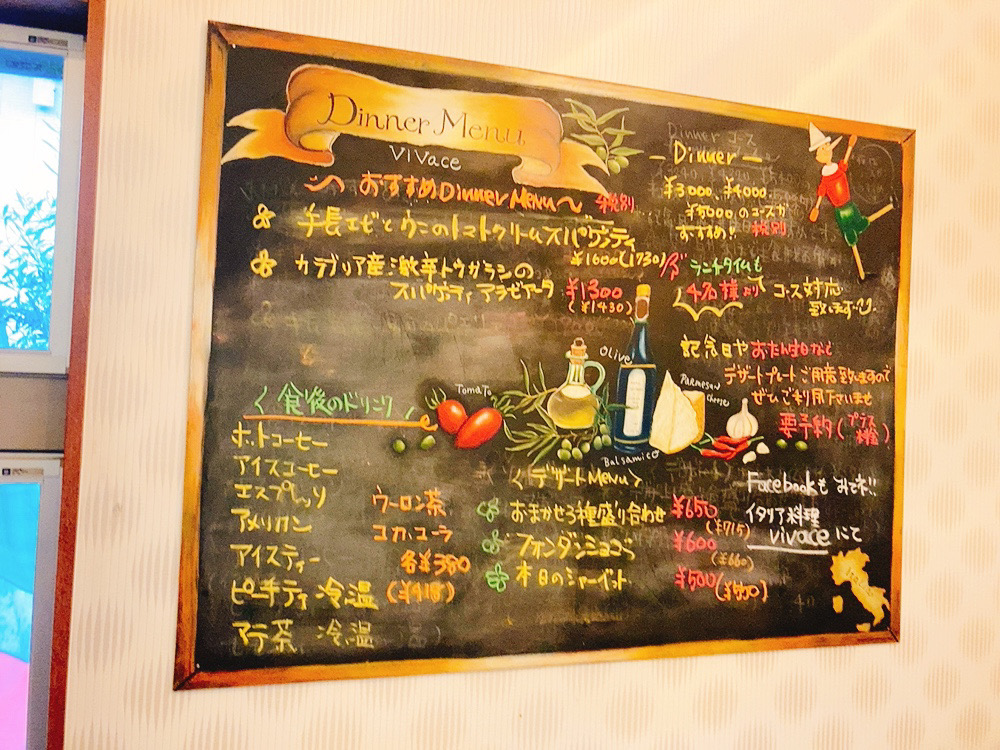 Dinner Menu
Vivace
〜 おすすめDinner Menu〜 税別
手長エビとウニのトマトクリームスパゲッティ
¥1600(1730)
カラブリア産激辛トウガラシの
スパゲティ アラビアータ ¥1300
(¥1430)
— Dinner —
¥3000、¥4000
¥5000のコースが
おすすめ!! 税別
ランチタイムも
4名様より コース対応
致します
記念日やお誕生日など
デザートプレートご用意致しますので
ぜひご利用下さいませ
要予約(プラス料金)
Tomato
Olive
Parmesan
cheese
Balsamico
〈食後のドリンク〉
ホットコーヒー
アイスコーヒー
エスプレッソ
アメリカン
アイスティー
ピーチティ 冷温
マテ茶 冷温
ウーロン茶
コカ・コーラ
各¥380
(¥418)
〈デザートMenu〉
おまかせ3種盛り合わせ ¥650
(¥715)
フォンダンショコラ ¥600
(¥660)
本日のシャーベット ¥500(¥550)
Facebookもみてネ!!
イタリア料理
vivaceにて